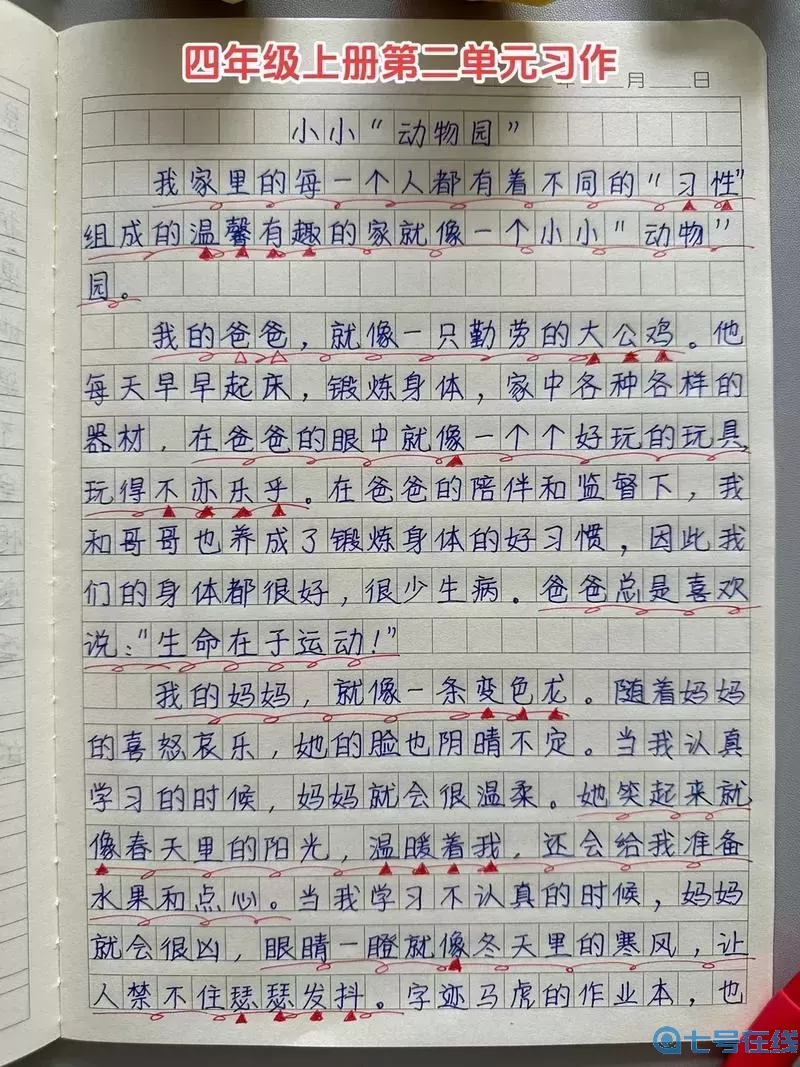 四年级上册第二单元习作
年 月 日
小小“动物园”
我家里的每一个人都有着不同的“习性”
组成的温馨有趣的家就像一个小小“动物”
园。
我的爸爸，就像一只勤劳的大公鸡。他
每天早早起床，锻炼身体，家中各种各样的
器材，在爸爸的眼中就像一个个好玩的玩具
玩得不亦乐乎。在爸爸的陪伴和监督下，我
和哥哥也养成了锻炼身体的好习惯，因此我
们的身体都很好，很少生病。爸爸总是喜欢
说：“生命在于运动！”
我的妈妈，就像一条变色龙。随着妈妈
的喜怒哀乐，她的脸也阴晴不定。当我认真
学习的时候，妈妈就会很温柔。她笑起来就
像春天里的阳光，温暖着我，还会给我准备
水果和点心。当我学习不认真的时候，妈妈
就会很凶，眼睛一瞪就像冬天里的寒风，让
人禁不住瑟瑟发抖。字迹马虎的作业本，也
七号在线